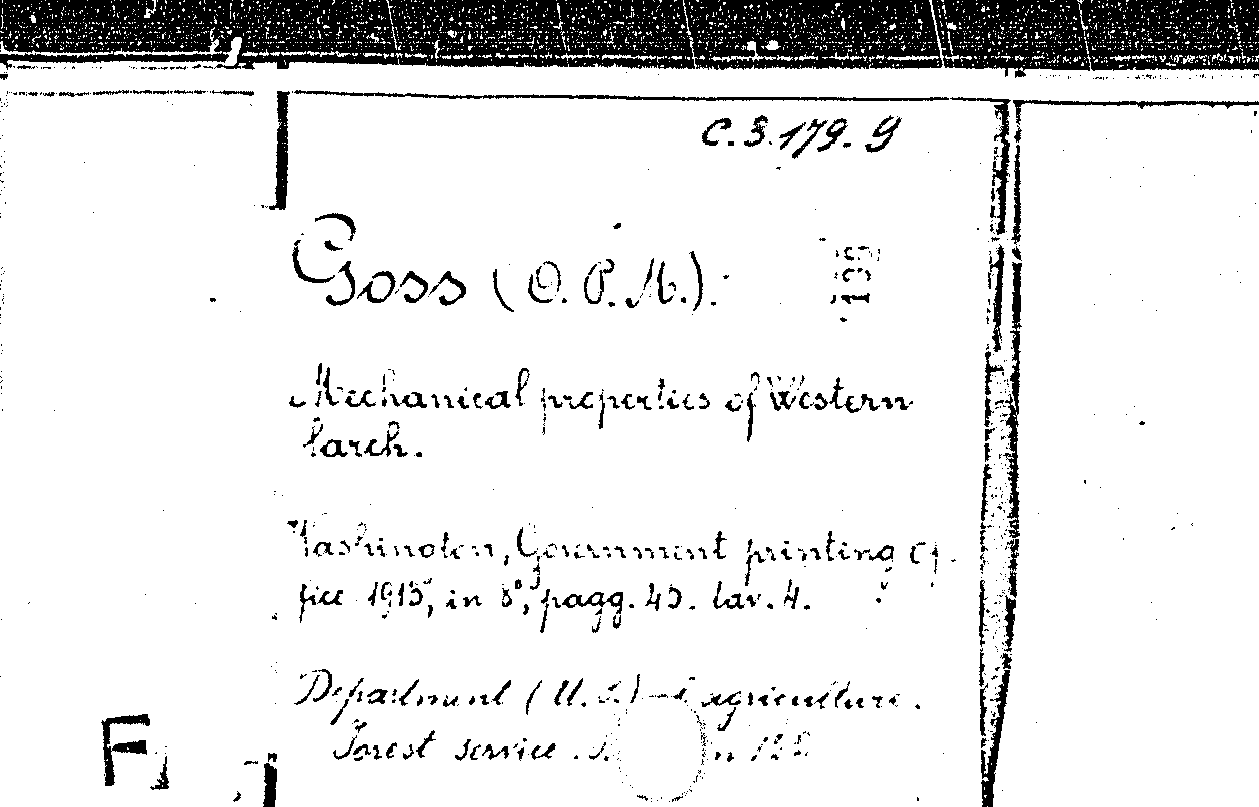 C.3.179.9
Goss (O. P. M.).
Mechanical properties of Western
larch.
Washington, Government printing of-
fice 1915, in 8°, pagg. 45. tav. 4.
Department (U. S.) of agriculture.
Forest service. 122